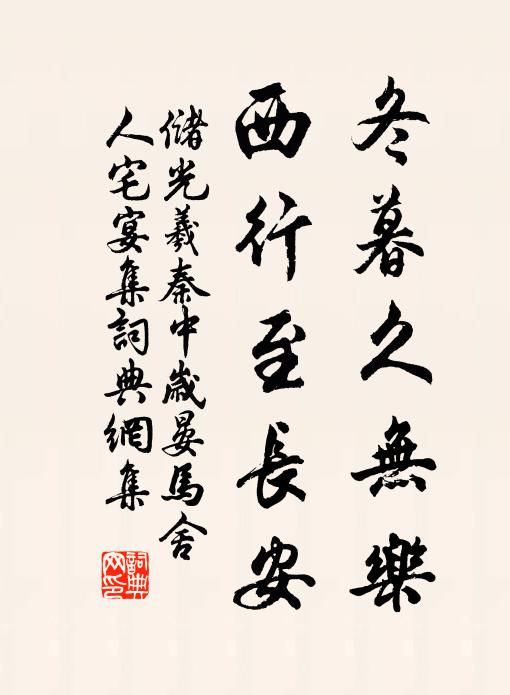 冬暮久無樂
西行至長安
儲光羲秦中歲晏馬舍
人宅宴集詞典網集
詞典網印